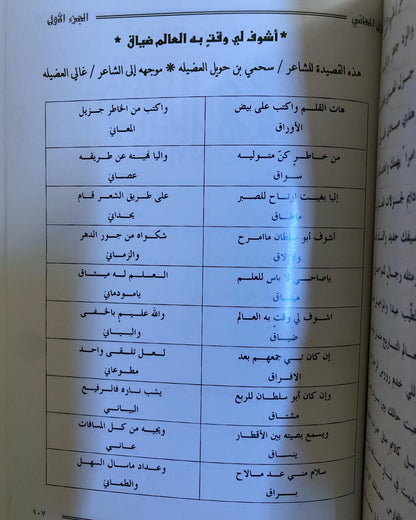 الجزء الأول
* أشوف لي وقتٍ به العالم ضياق *
هذه القصيدة للشاعر / سحمي بن حويل العضيله * موجهه إلى الشاعر / غالي العضيله
هات القلم واكتب على بيض
واكتب من الخاطر جزيل
الأوراق
المعاني
من خاطرٍ كنّ متوليه
واليا نهيته عن طريقه
سواق
عصاني
إليا بغيت اوتاح للصبر
على طريق الشعر قام
يحداني
أشوف أبو سلطان ماامرح
شكواه من جور الدهر
ولالاق
والزماني
ياصاحبي لا باس للعلم
العلم له ميثاق
ميثاق
يامودماني
اشوف لي وقتٍ به العالم
والله عليم بالخفى
ضياق
والبياني
إن كان تبي تجمعهم بعد
لعل تلقى واحد
الافراق
مطوعاني
وإن كان أبو سلطان للربع
يشب ناره فالرفيع
مشتاق
البياني
ويسمع بصيته بين الأقطار
ويجيه من كل المسافات
ينساق
عاني
سلام مني عد مالاح
وعداد ماسال السهل
براق
والطماني
١٠٧